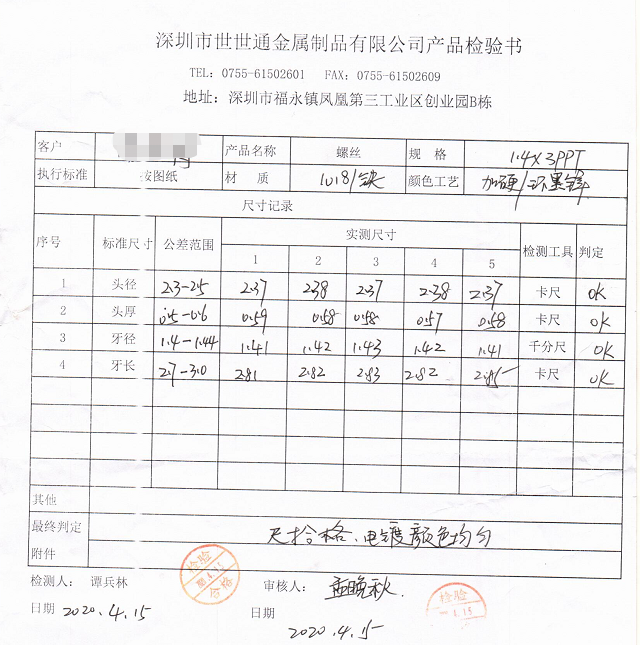 深圳市世世通金属制品有限公司产品检验书
TEL: 0755-61502601 FAX: 0755-61502609
地址: 深圳市福永镇凤凰第三工业区创业园B栋
客户 产品名称 螺丝 规 格 1.4×3PPT
执行标准 按图纸 材 质 1018/铁 颜色工艺 加硬/环黑锌
尺寸记录
序号 标准尺寸 公差范围 实测尺寸 检测工具 判定
1 2 3 4 5
1 头径 2.3-2.5 2.37 2.38 2.37 2.38 2.37 卡尺 OK
2 头厚 0.5-0.6 0.59 0.58 0.58 0.57 0.58 卡尺 OK
3 牙径 1.4-1.44 1.41 1.42 1.43 1.42 1.41 千分尺 OK
4 牙长 2.7-3.0 2.81 2.82 2.83 2.82 2.85 卡尺 OK
其他
最终判定 尺寸合格、电镀颜色均匀
附件
检测人: 谭兵林 检验 合格 审核人: 孟晚秋 检验
日期 2020.4.15 日期 2020.4.15